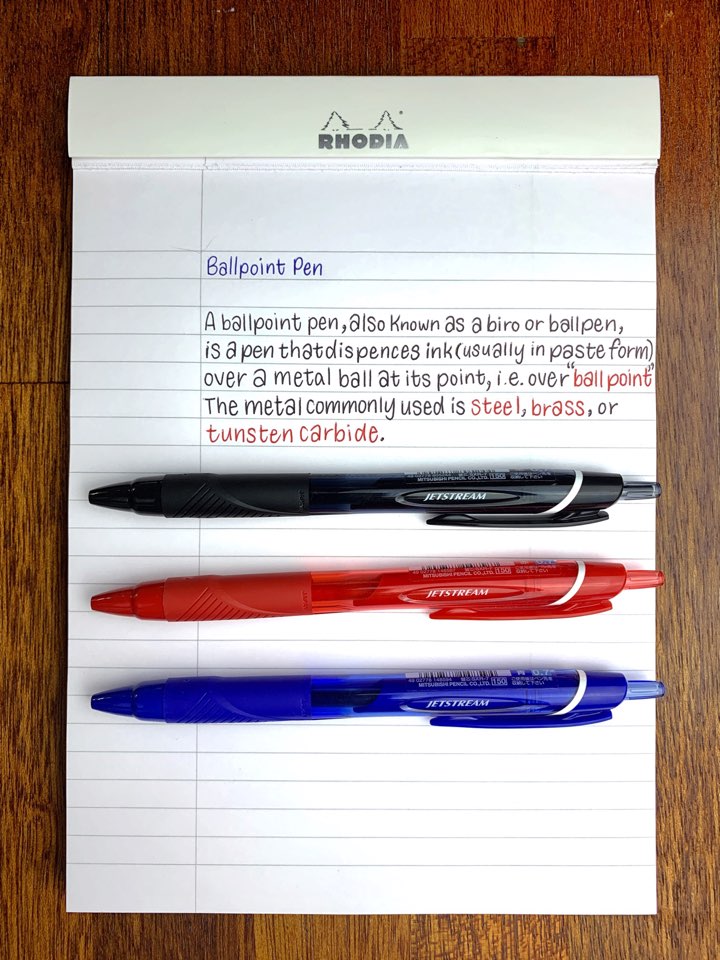 RHODIA
Ballpoint Pen
A ballpoint pen, also known as a biro or ballpen,
is a pen that dispences ink (usually in paste form)
over a metal ball at its point, i.e. over "ball point"
The metal commonly used is steel, brass, or
tunsten carbide.
JETSTREAM
MITSUBISHI PENCIL CO., LTD.
JETSTREAM
MITSUBISHI PENCIL CO., LTD.
JETSTREAM
MITSUBISHI PENCIL CO., LTD.